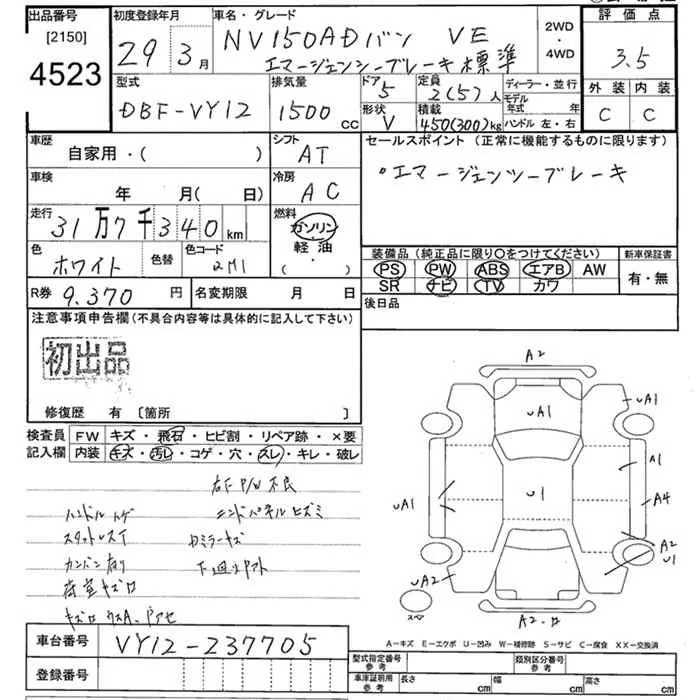 出品番号 初度登録年月 車名・グレード 評価点
[2150]
4523
29 3月 NV150ADバン VE 2WD・4WD 3.5
エマージェンシーブレーキ標準
型式 排気量 ドア 定員 ディーラー・並行 外装 内装
DBF-VY12 1500cc 5 2(5)人 モデル年式 年
形状 積載
V 450(300)kg ハンドル 左・右 C C
車歴 シフト セールスポイント (正常に機能するものに限ります)
自家用・( ) AT
・エマージェンシーブレーキ
車検 冷房
年 月( 日) AC
走行 燃料
31万7千340km ガソリン・軽油・( )
色 色替 色コード 装備品(純正品に限り○をつけてください) 新車保証書
ホワイト 2M1 PS PW ABS エアB AW 有・無
SR ナビ TV カワ
R券 9.370円 名変期限 月 日 後日品
注意事項申告欄(不具合内容等は具体的に記入して下さい)
初出品
修復歴 有 [箇所 ]
検査員記入欄 FW キズ・飛石・ヒビ割・リペア跡・×要
内装 キズ・汚レ・コゲ・穴・スレ・キレ・破レ
右F P/W 不良
ハンドル
スタットレスT
カンバン有り
荷室キズ
エンドパネルヒズミ
Rミラーキズ
下廻り
A2
UA1 UA1
A1
U1
UA1 A4
A2
U1
UA2
スペ
A2
A-キズ E-エクボ U-凹み W-補修跡 S-サビ C-腐食 XX-交換済
車台番号 VY12-237705
登録番号
型式指定番号 参考 類別区分番号 参考
車庫証明用 参考 長さ cm 幅 cm 高さ cm